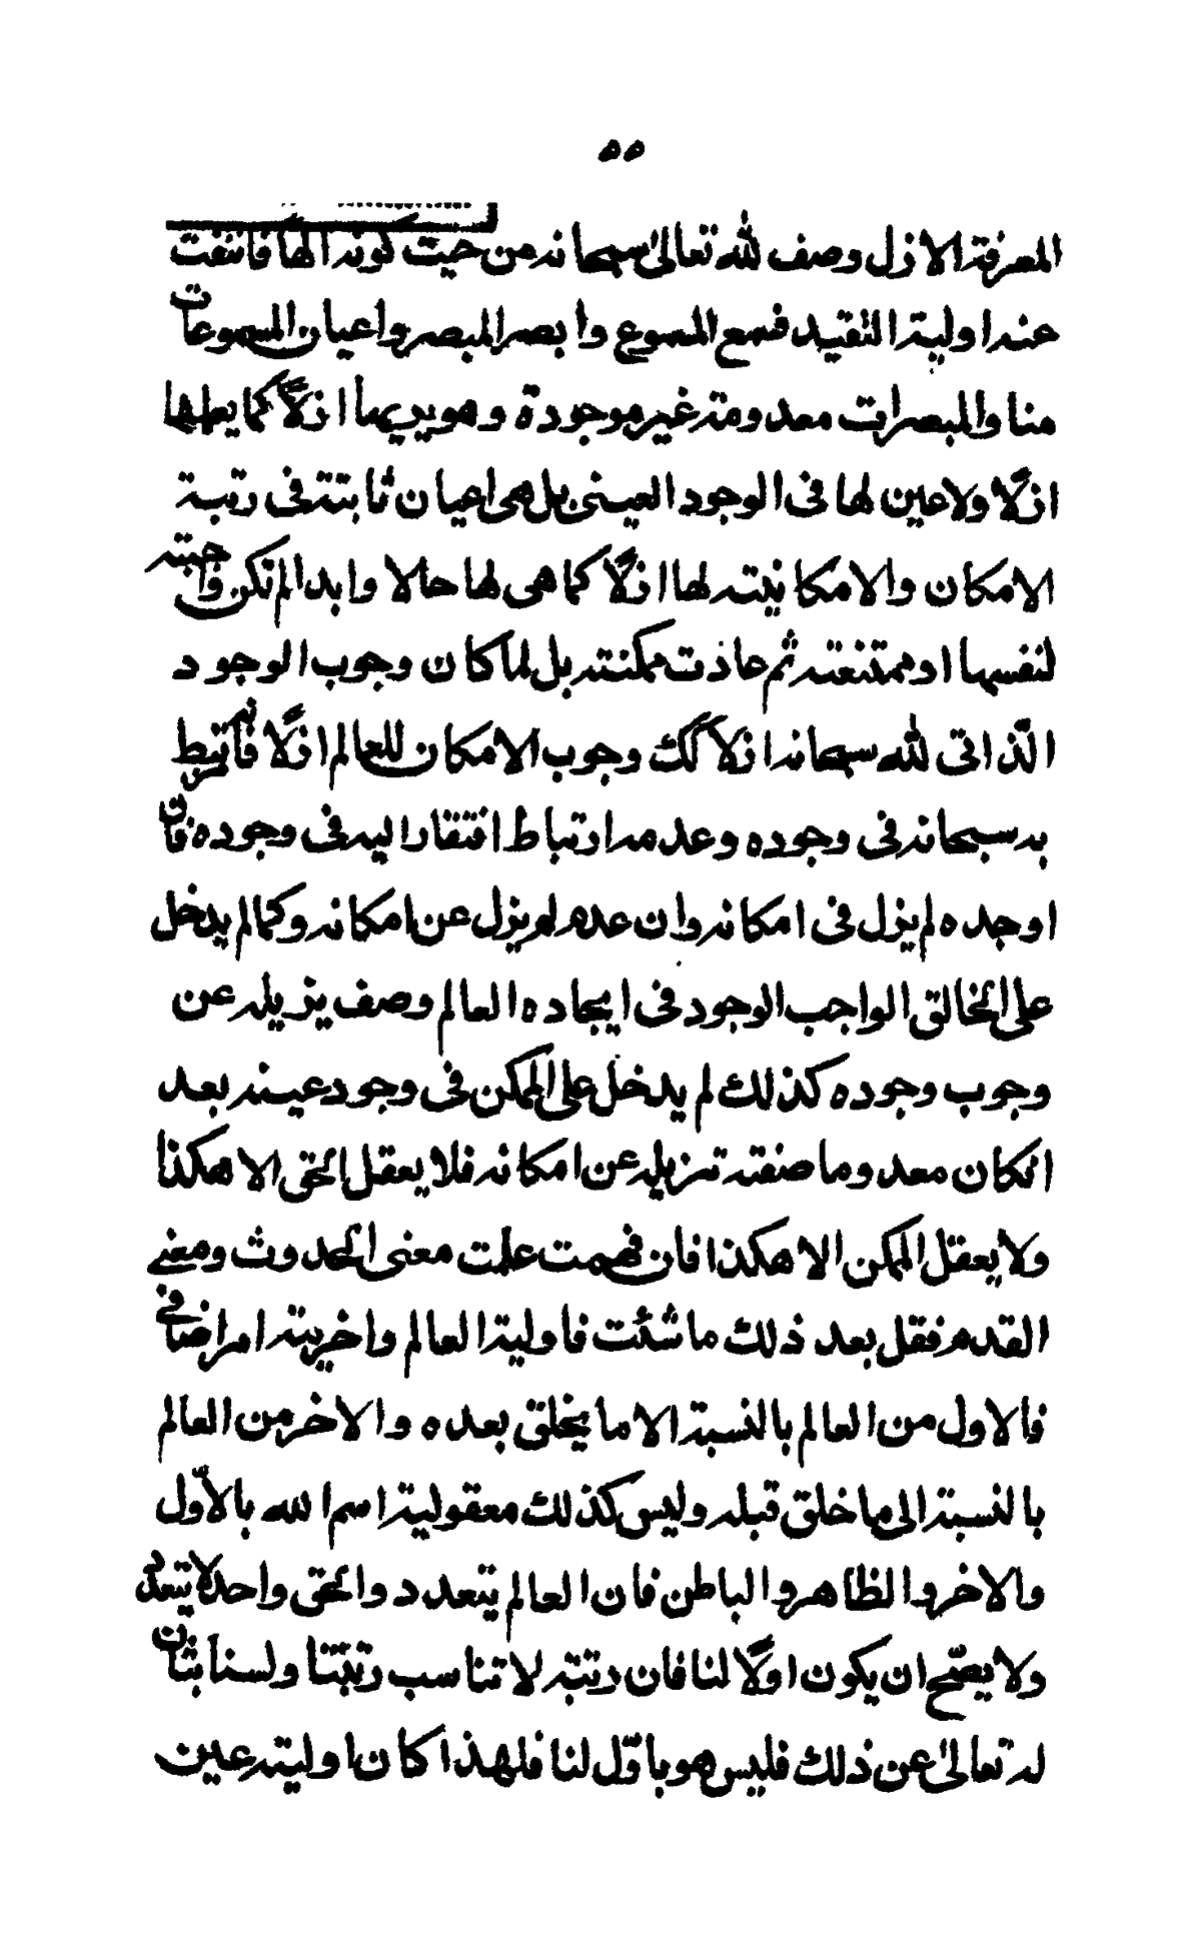 ٥٥
المعرفة الازل وصف لله تعالى سبحانه من حيث كونه الها فانتفت
عنه اولية التقييد فسمع المسموع وابصر المبصر واعيان المسموعات
منا والمبصرات معدومة غير موجودة وهو يريها ازلا كما يعلمها
ازلا ولا عين لها فى الوجود العينى بل هى اعيان ثابتة فى رتبة
الامكان والامكانية لها ازلا كما هى لها حالا وابدا لم تكن واجبة
لنفسها او ممتنعة ثم عادت ممكنة بل لما كان وجوب الوجود
الذاتى لله سبحانه ازلا كك وجوب الامكان للعالم ازلا
به سبحانه فى وجوده وعدمه ارتباط افتقار اليه فى وجوده فان
اوجده لم يزل فى امكانه وان عدم لم يزل عن امكانه وكما لم يدخل
على الخالق الواجب الوجود فى ايجاده العالم وصف يزيله عن
وجوب وجوده كذلك لم يدخل على الممكن فى وجود عينه بعد
انكان معدوما صفة تزيله عن امكانه فلا يعقل الحق الا هكذا
ولا يعقل الممكن الا هكذا فان فهمت علمت معنى الحدوث ومعنى
القدم فقل بعد ذلك ما شئت فاولية العالم واخرية امر اضافى
فالاول من العالم بالنسبة الا ما يخلق بعده والاخر من العالم
بالنسبة الى ما خلق قبله وليس كذلك معقولية اسم الله بالاوّل
والاخر والظاهر والباطن فان العالم يتعدد والحق واحد لا يتعدد
ولا يصّح ان يكون اوّلا لنا فان رتبته لا تناسب رتبتنا ولسنا بثان
له تعالى عن ذلك فليس هو باوّل لنا فلهذا كان اوليته عين